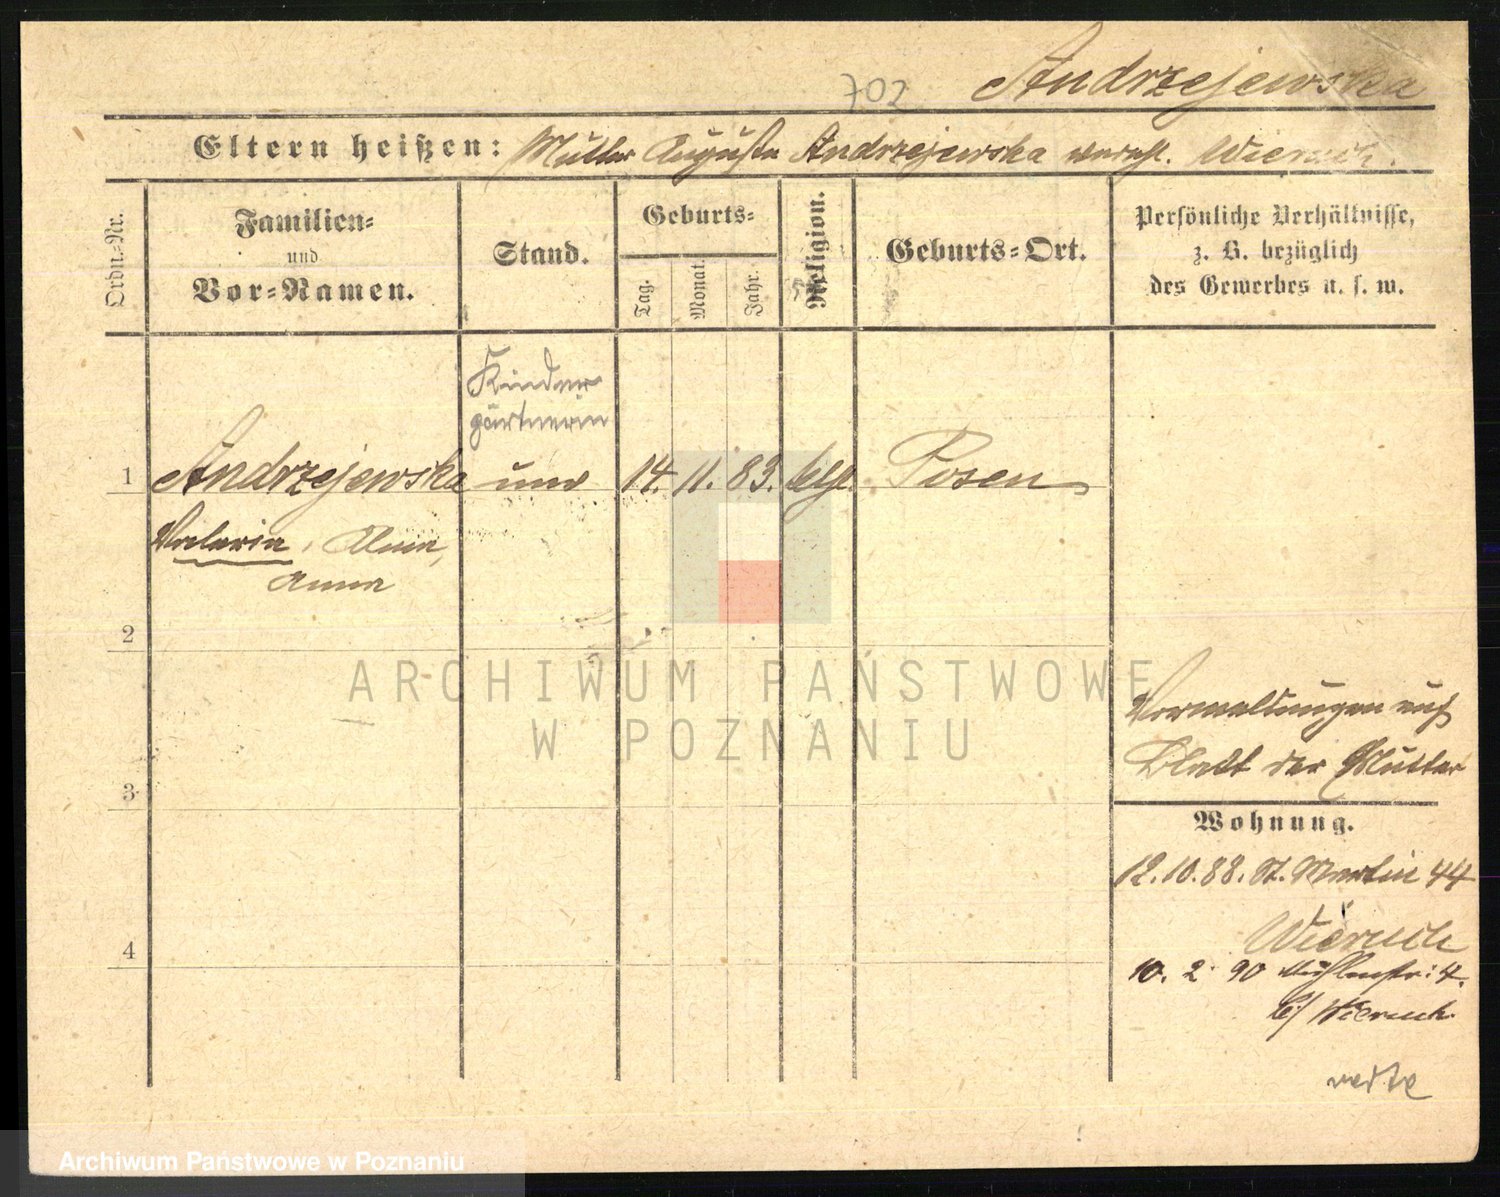 702 Andrzejewska
Eltern heißen: Mutter Auguste Andrzejewska verehl. Wieruch.
Ordn.-Nr.
Familien-
und
Vor-Namen.
Stand.
Geburts-
Tag.
Monat.
Jahr.
Religion.
Geburts-Ort.
Persönliche Verhältnisse,
z. B. bezüglich
des Gewerbes u. s. w.
Kinder
gärtnerin
1 Andrzejewska unv 14. 11. 83. Posen
Valeria, Alma,
Anna
2
3
4
Vormeldungen auf
Blatt der Mutter
Wohnung.
12.10.88. St. Martin 44
Wieruch
10. 2. 90 Mühlenstr: 4.
b/ Wieruch.
ARCHIWUM PAŃSTWOWE
W POZNANIU
Archiwum Państwowe w Poznaniu